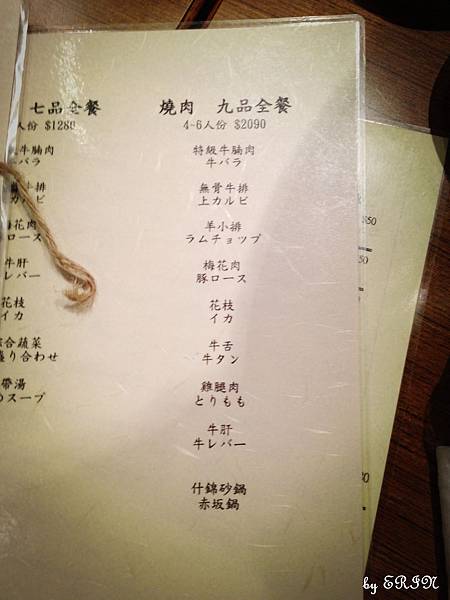 七品全餐
人份 $1280
牛腩肉
牛バラ
牛排
カルビ
梅花肉
ロース
牛肝
牛レバー
花枝
イカ
綜合蔬菜
盛り合わせ
帶湯
のスープ
燒肉 九品全餐
4~6人份 $2090
特級牛腩肉
牛バラ
無骨牛排
上カルビ
羊小排
ラムチョップ
梅花肉
豚ロース
花枝
イカ
牛舌
牛タン
雞腿肉
とりもも
牛肝
牛レバー
什錦砂鍋
赤坂鍋
50
50
30
by ERIN